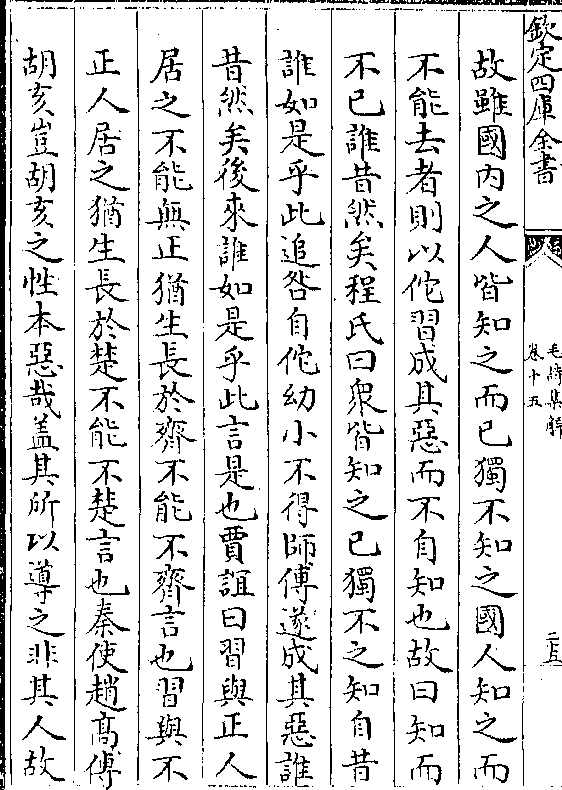 欽定四庫全書
毛詩集解
卷十五
二五
故雖國内之人皆知之而已獨不知之國人知之而
不能去者則以佗習成其惡而不自知也故曰知而
不已誰昔然矣程氏曰衆皆知之已獨不之知自昔
誰如是乎此追咎自佗幼小不得師傅遂成其惡誰
昔然矣後來誰如是乎此言是也賈誼曰習與正人
居之不能無正猶生長於齊不能不齊言也習與不
正人居之猶生長於楚不能不楚言也秦使趙髙傅
胡亥豈胡亥之性本惡哉盖其所以導之非其人故